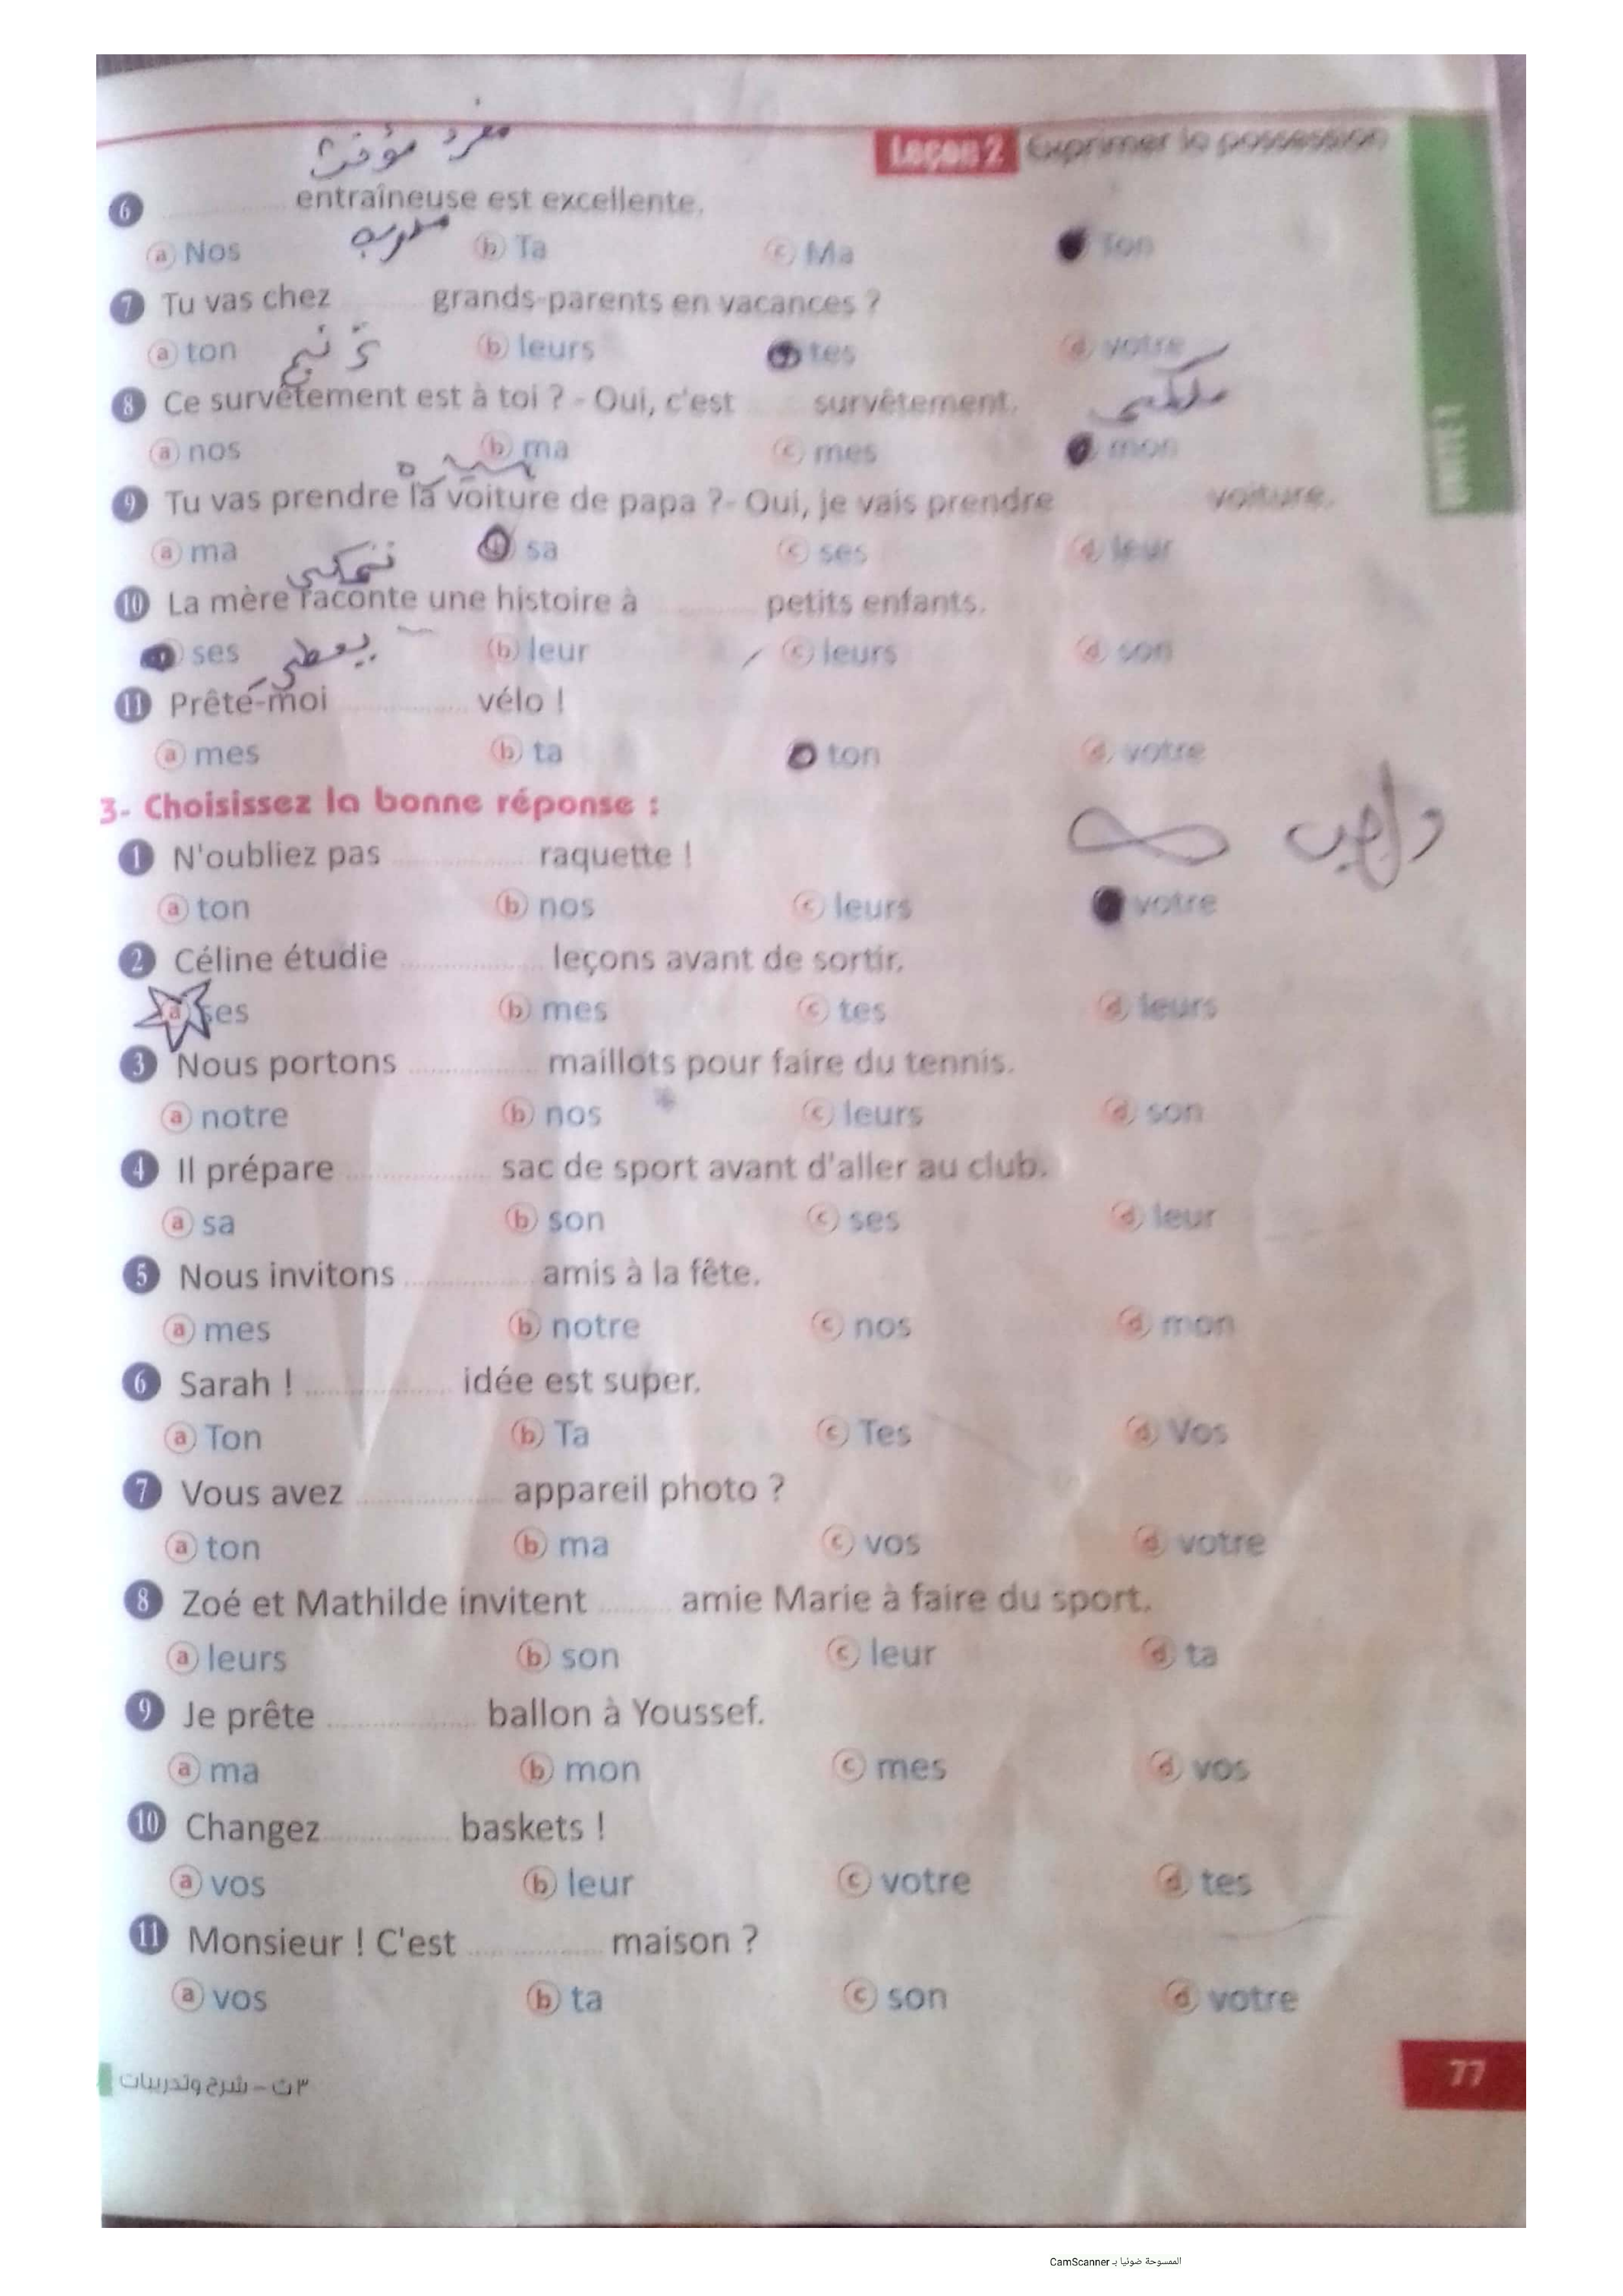 مفرد مؤنث
Leçon 2 Exprimer la possession
6 ............ entraîneuse est excellente.
مدربة
a Nos b Ta c Ma Ton
7 Tu vas chez ........ grands-parents en vacances ?
a ton b leurs tes d votre
8 Ce survêtement est à toi ? - Oui, c'est ........ survêtement.
a nos b ma c mes mon
UNITÉ 1
9 Tu vas prendre la voiture de papa ?- Oui, je vais prendre ............ voiture.
a ma sa c ses d leur
10 La mère raconte une histoire à ............ petits enfants.
ses b leur c leurs d son
يعطي
11 Prête-moi ............ vélo !
a mes b ta ton d votre
3- Choisissez la bonne réponse :
واجب
1 N'oubliez pas ............ raquette !
a ton b nos c leurs votre
2 Céline étudie ............ leçons avant de sortir.
a ses b mes c tes d leurs
3 Nous portons ............ maillots pour faire du tennis.
a notre b nos c leurs d son
4 Il prépare ............ sac de sport avant d'aller au club.
a sa b son c ses d leur
5 Nous invitons ............ amis à la fête.
a mes b notre c nos d mon
6 Sarah ! ............ idée est super.
a Ton b Ta c Tes d Vos
7 Vous avez ............ appareil photo ?
a ton b ma c vos d votre
8 Zoé et Mathilde invitent ........ amie Marie à faire du sport.
a leurs b son c leur d ta
9 Je prête ............ ballon à Youssef.
a ma b mon c mes d vos
10 Changez ............ baskets !
a vos b leur c votre d tes
11 Monsieur ! C'est ............ maison ?
a vos b ta c son d votre
٣ث – شرح وتدريبات
77
الممسوحة ضوئيا بـ CamScanner